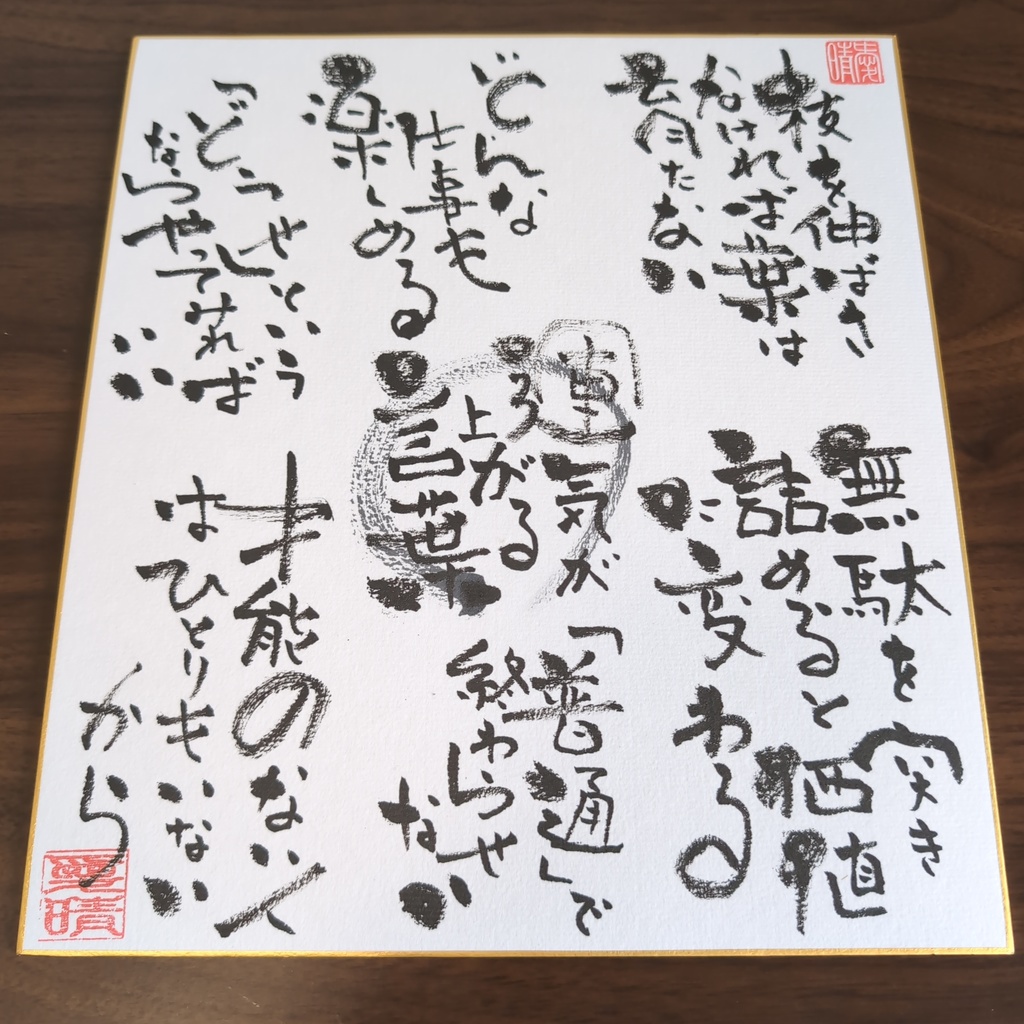 枝を伸ばさ
なければ葉は
育たない
どんな
仕事も
楽しめる
「どうせ」という
ならやってみれば
いい
運気が
上がる
言葉
無駄を突き
詰めると価値
に変わる
「普通」で
終わらせ
ない
才能のない人
はひとりもいない
から